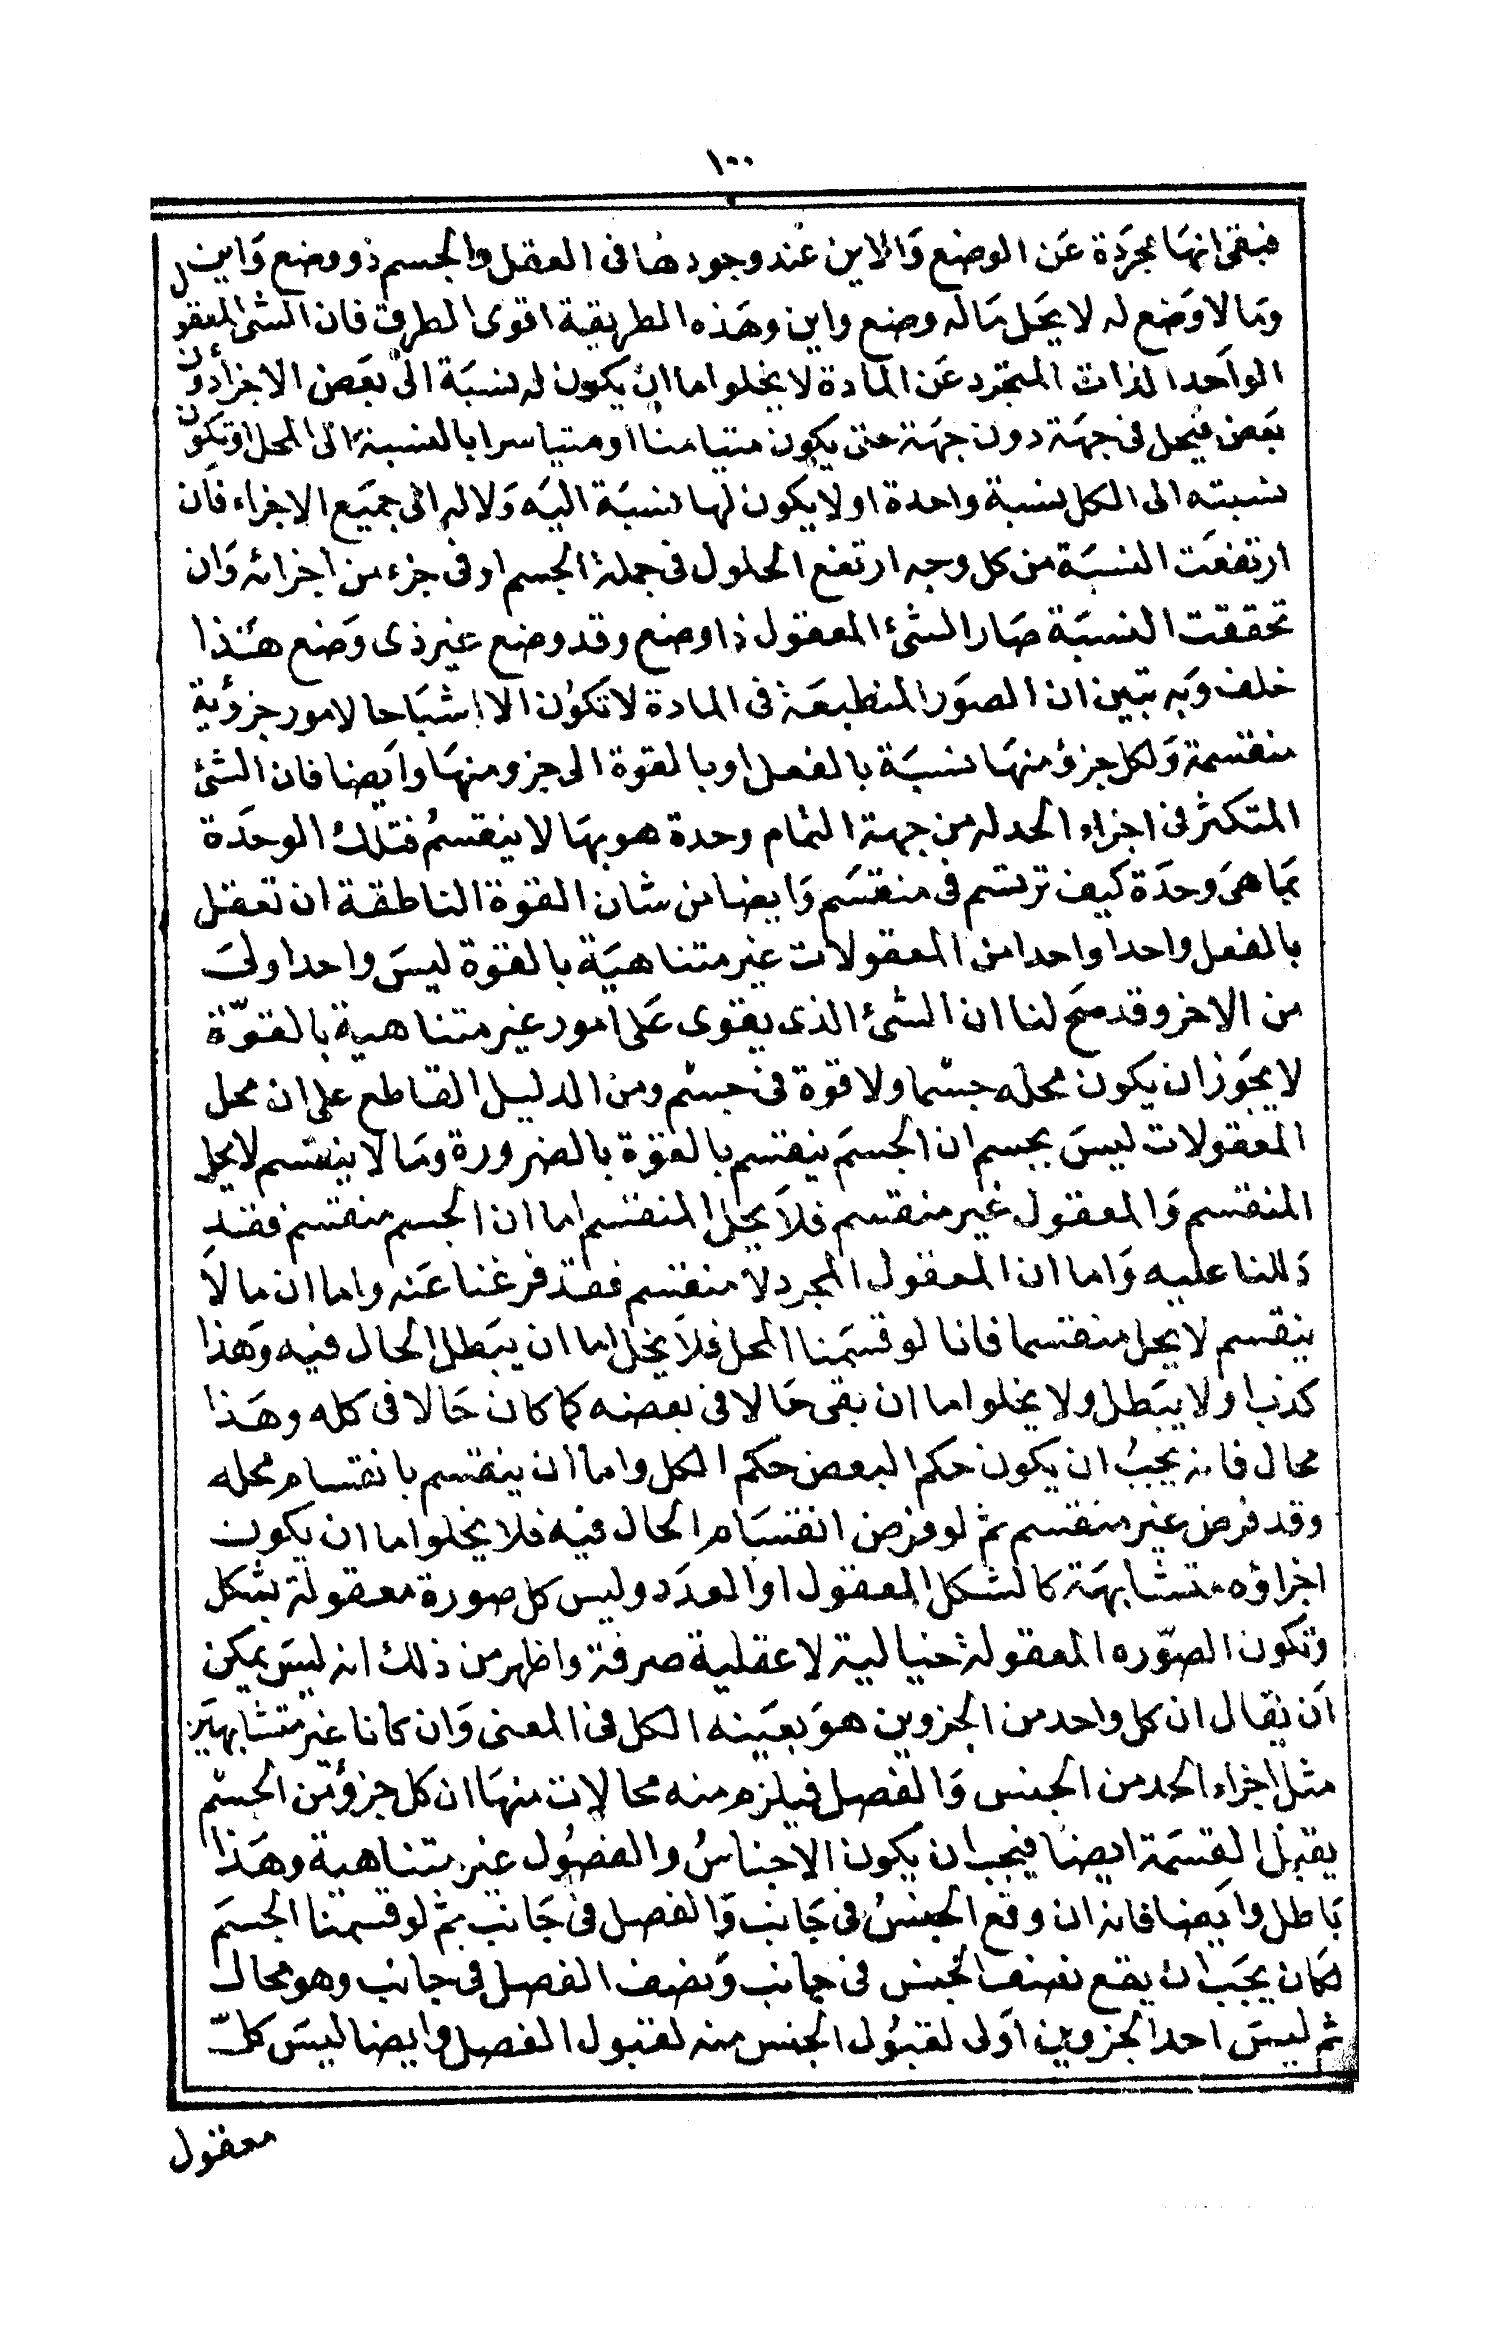 ١٠٠
فبقى انها مجردة عن الوضع والاين عند وجودها فى العقل والجسم ذو وضع واين
وما لا وضع له لا يحل ماله وضع واين وهذه الطريقة اقوى الطرق فان الشئ المعقول
الواحد الذات المتجرد عن المادة لا يخلوا اما ان يكون له نسبة الى بعض الاجزأ دون
بعض فيحل فى جهة دون جهة حتى يكون متيامنا او متياسرا بالنسبة الى المحل او تكون
نسبته الى الكل نسبة واحدة او لا يكون لها نسبة اليه ولا له الى جميع الاجزاء فان
ارتفعت النسبة من كل وجه ارتفع الحلول فى جملة الجسم او فى جزء من اجزائه وان
تحققت النسبة صار الشئ المعقول ذا وضع وقد وضع غير ذى وضع هذا
خلف وبه تبين ان الصور المنطبعة فى المادة لا تكون الا اشباحا لامور جزؤية
منقسمة ولكل جزؤ منها نسبة بالفعل او بالقوة الى جزو منها وايضا فان الشئ
المتكثر فى اجزاء الحد له من جهة التمام وحدة هو بها لا ينقسم فتلك الوحدة
بما هى وحدة كيف ترتسم فى منقسم وايضا من شان القوة الناطقة ان تعقل
بالفعل واحدا واحدا من المعقولات غير متناهية بالقوة ليس واحد اولى
من الاخر وقد صح لنا ان الشئ الذى يقوى على امور غير متناهية بالقوّة
لا يجوز ان يكون محله جسما ولا قوة فى جسم ومن الدليل القاطع على ان محل
المعقولات ليس بجسم ان الجسم ينقسم بالقوة بالضرورة وما لا ينقسم لا يحل
المنقسم والمعقول غير منقسم فلا يحل المنقسم اما ان الجسم منقسم فقد
دللنا عليه واما ان المعقول المجرد لا منقسم فقد فرغنا عنه واما ان ما لا
ينقسم لا يحل منقسما فانا لو قسمنا المحل فلا يخل اما ان يبطل الحال فيه وهذا
كذب او لا يبطل ولا يخلوا اما ان بقى حالا فى بعضه كما كان حالا فى كله وهذا
محال فانه يجب ان يكون حكم البعض حكم الكل واما ان ينقسم بانقسام محله
وقد فرض غير منقسم ثم لو فرض انقسام الحال فيه فلا يخلوا اما ان يكون
اجزاؤه متشابهة كالشكل المعقول او العدد وليس كل صورة معقولة بشكل
وتكون الصّوره المعقولة خيالية لا عقلية صرفة واظهر من ذلك انه ليس يمكن
ان يقال ان كل واحد من الجزوين هو بعينه الكل فى المعنى وان كانا غير متشابهين
مثل اجزاء الحد من الجنس والفصل فيلزم منه محالات منها ان كل جزؤ من الجسم
يقبل القسمة ايضا فيجب ان يكون الاجناس والفصول غير متناهية وهذا
باطل وايضا فانه ان وقع الجنس فى جانب والفصل فى جانب ثم لو قسمنا الجسم
لكان يجب ان يقع نصف الجنس فى جانب ونصف الفصل فى جانب وهو محال
ثم ليس احد الجزوين اولى لقبول الجنس منه لقبول الفصل وايضا ليس كلّ
معقول